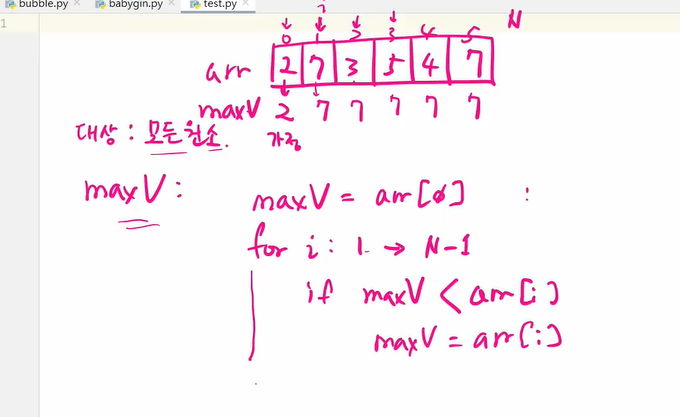 bubble.py babygin.py test.py
1
0 1 2 3 4 5 N
arr 2 7 3 5 4 7
maxV 2 7 7 7 7 7
대상 : 모든 원소. 가정
maxV : maxV = arr[0] :
for i : 1 → N-1
if maxV < arr[i]
maxV = arr[i]